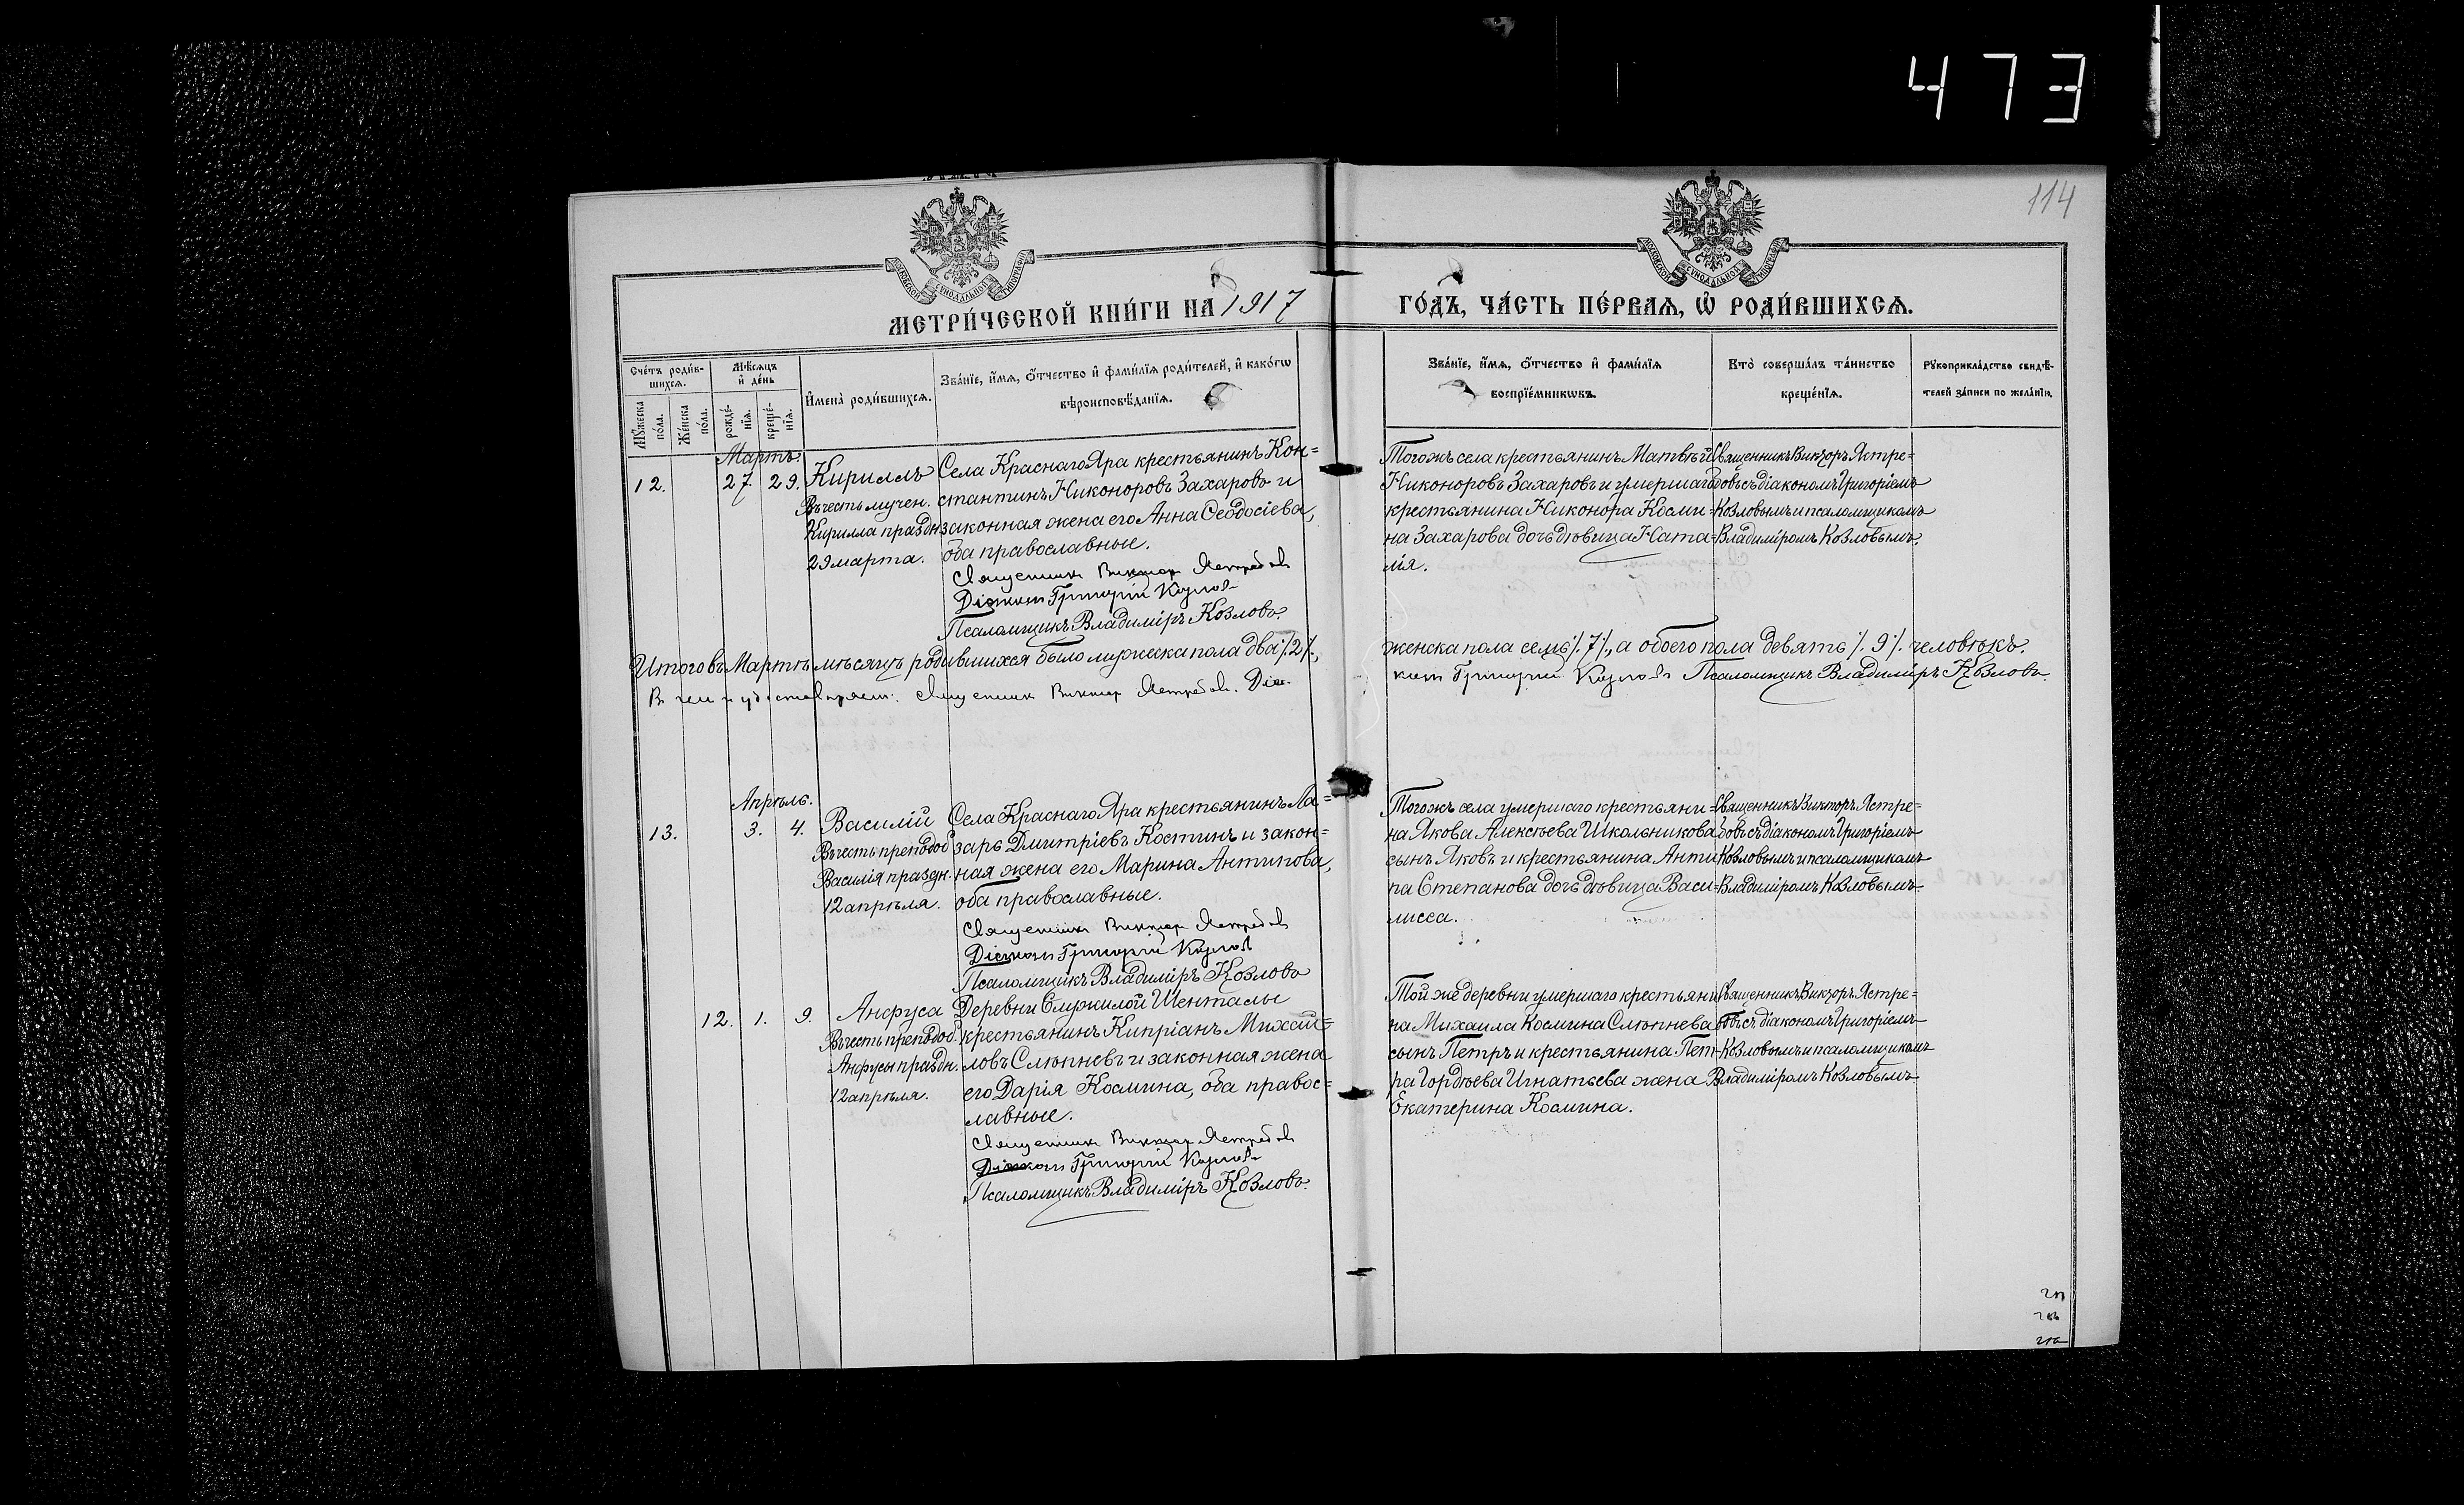 473
114
МОСКОВСКОЙ СѴНОДАЛЬНОЙ ТИПОГРАФІИ
МОСКОВСКОЙ СѴНОДАЛЬНОЙ ТИПОГРАФІИ
МЕТРИ́ЧЕСКОЙ КНИ́ГИ НА 1917
ГО́ДЪ, ЧА́СТЬ ПЕ́РВАЯ, Ѡ҆ РОДИ́ВШИХСЯ.
Сче́тъ роди́в-
шихся.
Мѣ́сяцъ
и҆ де́нь
Мꙋ́жеска
по́ла.
Же́нска
по́ла.
рожде́-
нїя.
креще́-
нїя.
И҆мена̀ роди́вшихся.
Зва́нїе, и҆́мя, о҆́тчество и҆ фами́лїя роди́телей, и҆ како́гѡ
вѣроисповѣ́данїя.
Зва́нїе, и҆́мя, о҆́тчество и҆ фами́лїя
воспрїе́мникѡвъ.
Кто̀ соверша́лъ та́инство
креще́нїя.
Рꙋкоприкла́дство свидѣ́-
телей за́писи по жела́нїю.
Мартъ.
12. 27. 29.
Кириллъ
Въ честь мучен.
Кирилла праздн.
29 марта.
Села Краснаго Яра крестьянинъ Кон=
стантинъ Никоноровъ Захаровъ и
законная жена его Анна Ѳеодосіева,
оба православные.
Священникъ Викторъ Ястребовъ
Діаконъ Григорій Козловъ
Псаломщикъ Владиміръ Козловъ.
Тогожъ села крестьянинъ Матвѣй
Никоноровъ Захаровъ и умершаго
крестьянина Никонора Косми=
на Захарова дочь дѣвица Ната=
лія.
Священникъ Викторъ Ястре=
бовъ съ діакономъ Григоріемъ
Козловымъ и псаломщикомъ
Владиміромъ Козловымъ.
Итого въ Мартѣ мѣсяцѣ родившихся было мужеска пола два ./.2./.,
женска пола семь ./.7./., а обоего пола девять ./.9./. человѣкъ.
В чем и удостоверяем: Священник Виктор Ястребов. Діа-
конъ Григорій Козловъ Псаломщикъ Владиміръ Козловъ.
Апрѣль.
13. 3. 4.
Василій
Въ честь преподоб.
Василія праздн.
12 апрѣля.
Села Краснаго Яра крестьянинъ Ла=
зарь Дмитріевъ Костинъ и закон=
ная жена его Марина Антипова,
оба православные.
Священникъ Викторъ Ястребовъ
Діаконъ Григорій Козловъ
Псаломщикъ Владиміръ Козловъ
Тогожъ села умершаго крестьяни=
на Якова Алексѣева Школьникова
сынъ Яковъ и крестьянина Анти
па Степанова дочь дѣвица Васи=
лисса.
Священникъ Викторъ Ястре=
бовъ съ діакономъ Григоріемъ
Козловымъ и псаломщикомъ
Владиміромъ Козловымъ.
12. 1. 9.
Анфуса
Въ честь преподоб.
Анфусы праздн.
12 апрѣля.
Деревни Служилой Шенталы
крестьянинъ Кипріанъ Михай=
ловъ Слюпневъ и законная жена
его Дарія Космина, оба правос=
лавные.
Священникъ Викторъ Ястребовъ
Діаконъ Григорій Козловъ
Псаломщикъ Владиміръ Козловъ.
Той же деревни умершаго крестьяни
на Михаила Космина Слюпнева
сынъ Петръ и крестьянина Пет-
ра Гордѣева Игнатьева жена
Екатерина Космина.
Священникъ Викторъ Ястре=
бовъ съ діакономъ Григоріемъ
Козловымъ и псаломщикомъ
Владиміромъ Козловымъ